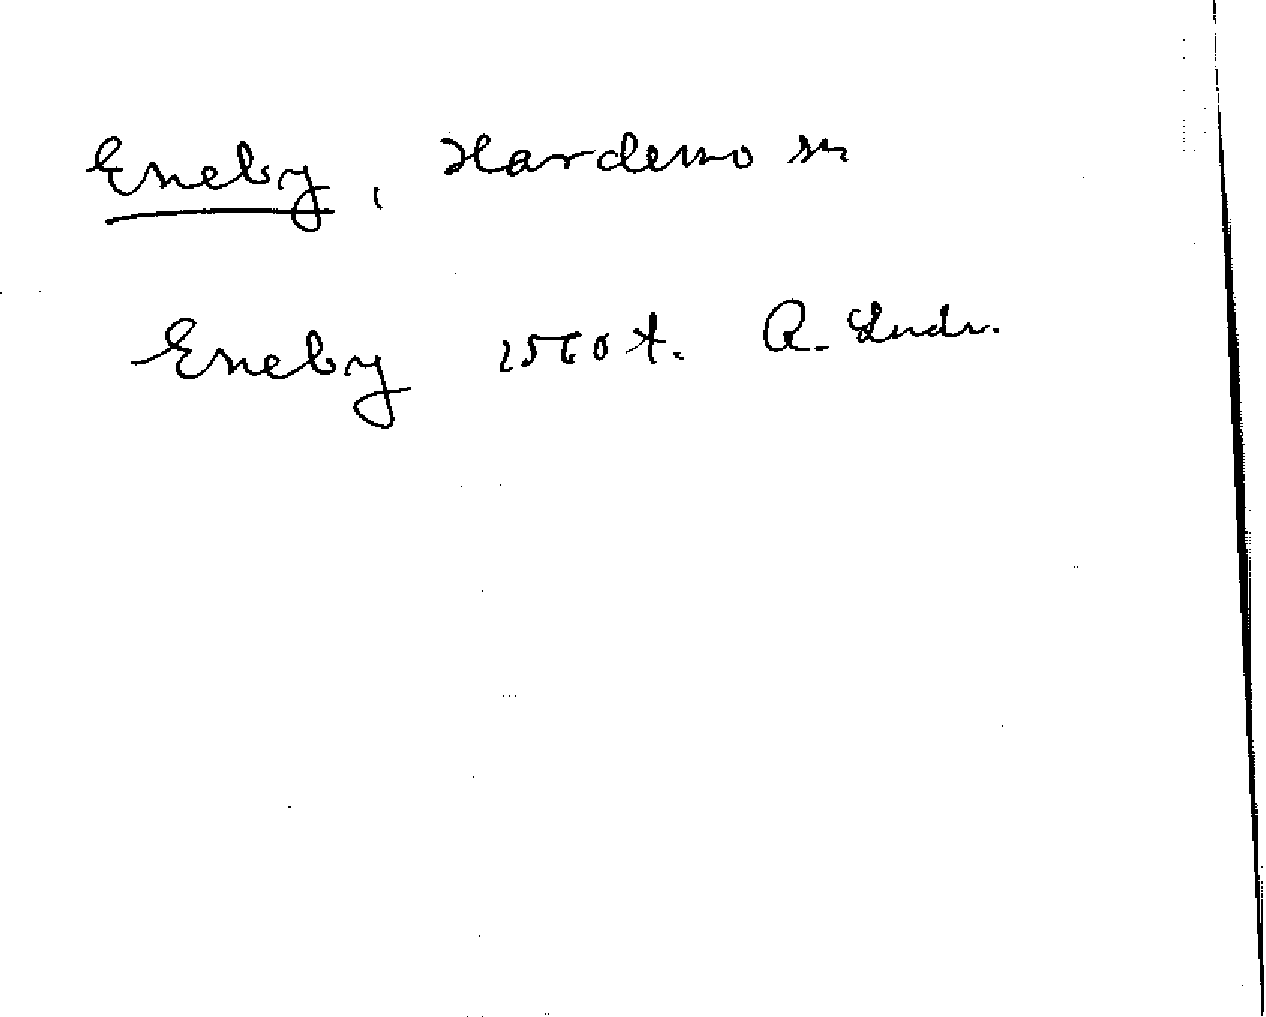 Eneby, Hardemo sn
Eneby 1560 t. R. Lindv.